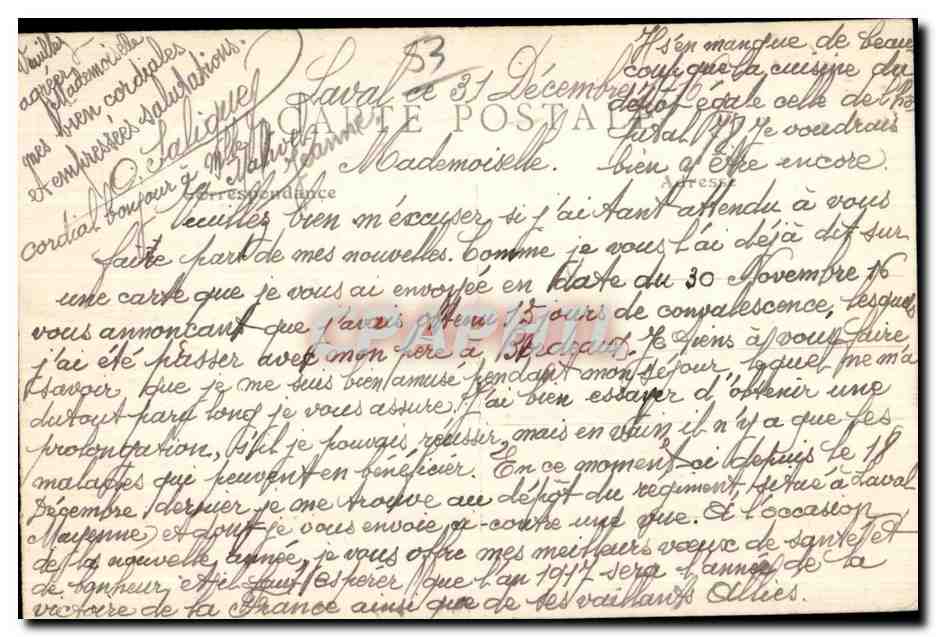 53
Laval le 31 Décembre 1916
CARTE POSTALE
Mademoiselle.
Correspondance
Adresse
Veuillez bien m'éxcuser, si j'ai tant attendu à vous
faire part de mes nouvelles. Comme je vous l'ai déjà dit sur
une carte que je vous ai envoyée en date du 30 Novembre 16
vous annoncant que j'avais obtenu 15 jours de convalescence, lesquels
j'ai été passer avec mon père à Bordeaux. Je tiens à vous faire
savoir que je me suis bien amusé pendant mon séjour, lequel ne m'a
du tout paru long je vous assure. J'ai bien essayer d'obtenir une
prolongation, s'il je pouvais réusser, mais en vain il n'y a que les
malades qui peuvent en bénéficier. En ce moment-ci depuis le 18
Décembre dernier je me trouve au dépôt du régiment, situé à Laval
Mayenne) et dont je vous envoie ci-contre une vue. A l'occasion
de la nouvelle année, je vous offre mes meilleurs vœux de santé et
de bonheur, et il faut espérer que l'an 1917 sera l'année de la
victoire de la France ainsi que de ses vaillants Alliés.
Il s'en manque de beau
coup que la cuisine du
dépôt égale celle de
Je voudrais
bien y être encore
Veuillez
agréer
Mademoiselle
mes bien cordiales
et empressées salutations.
O. Saligue
cordial bonjour à Mlle
Jeanne
CPAPHIL